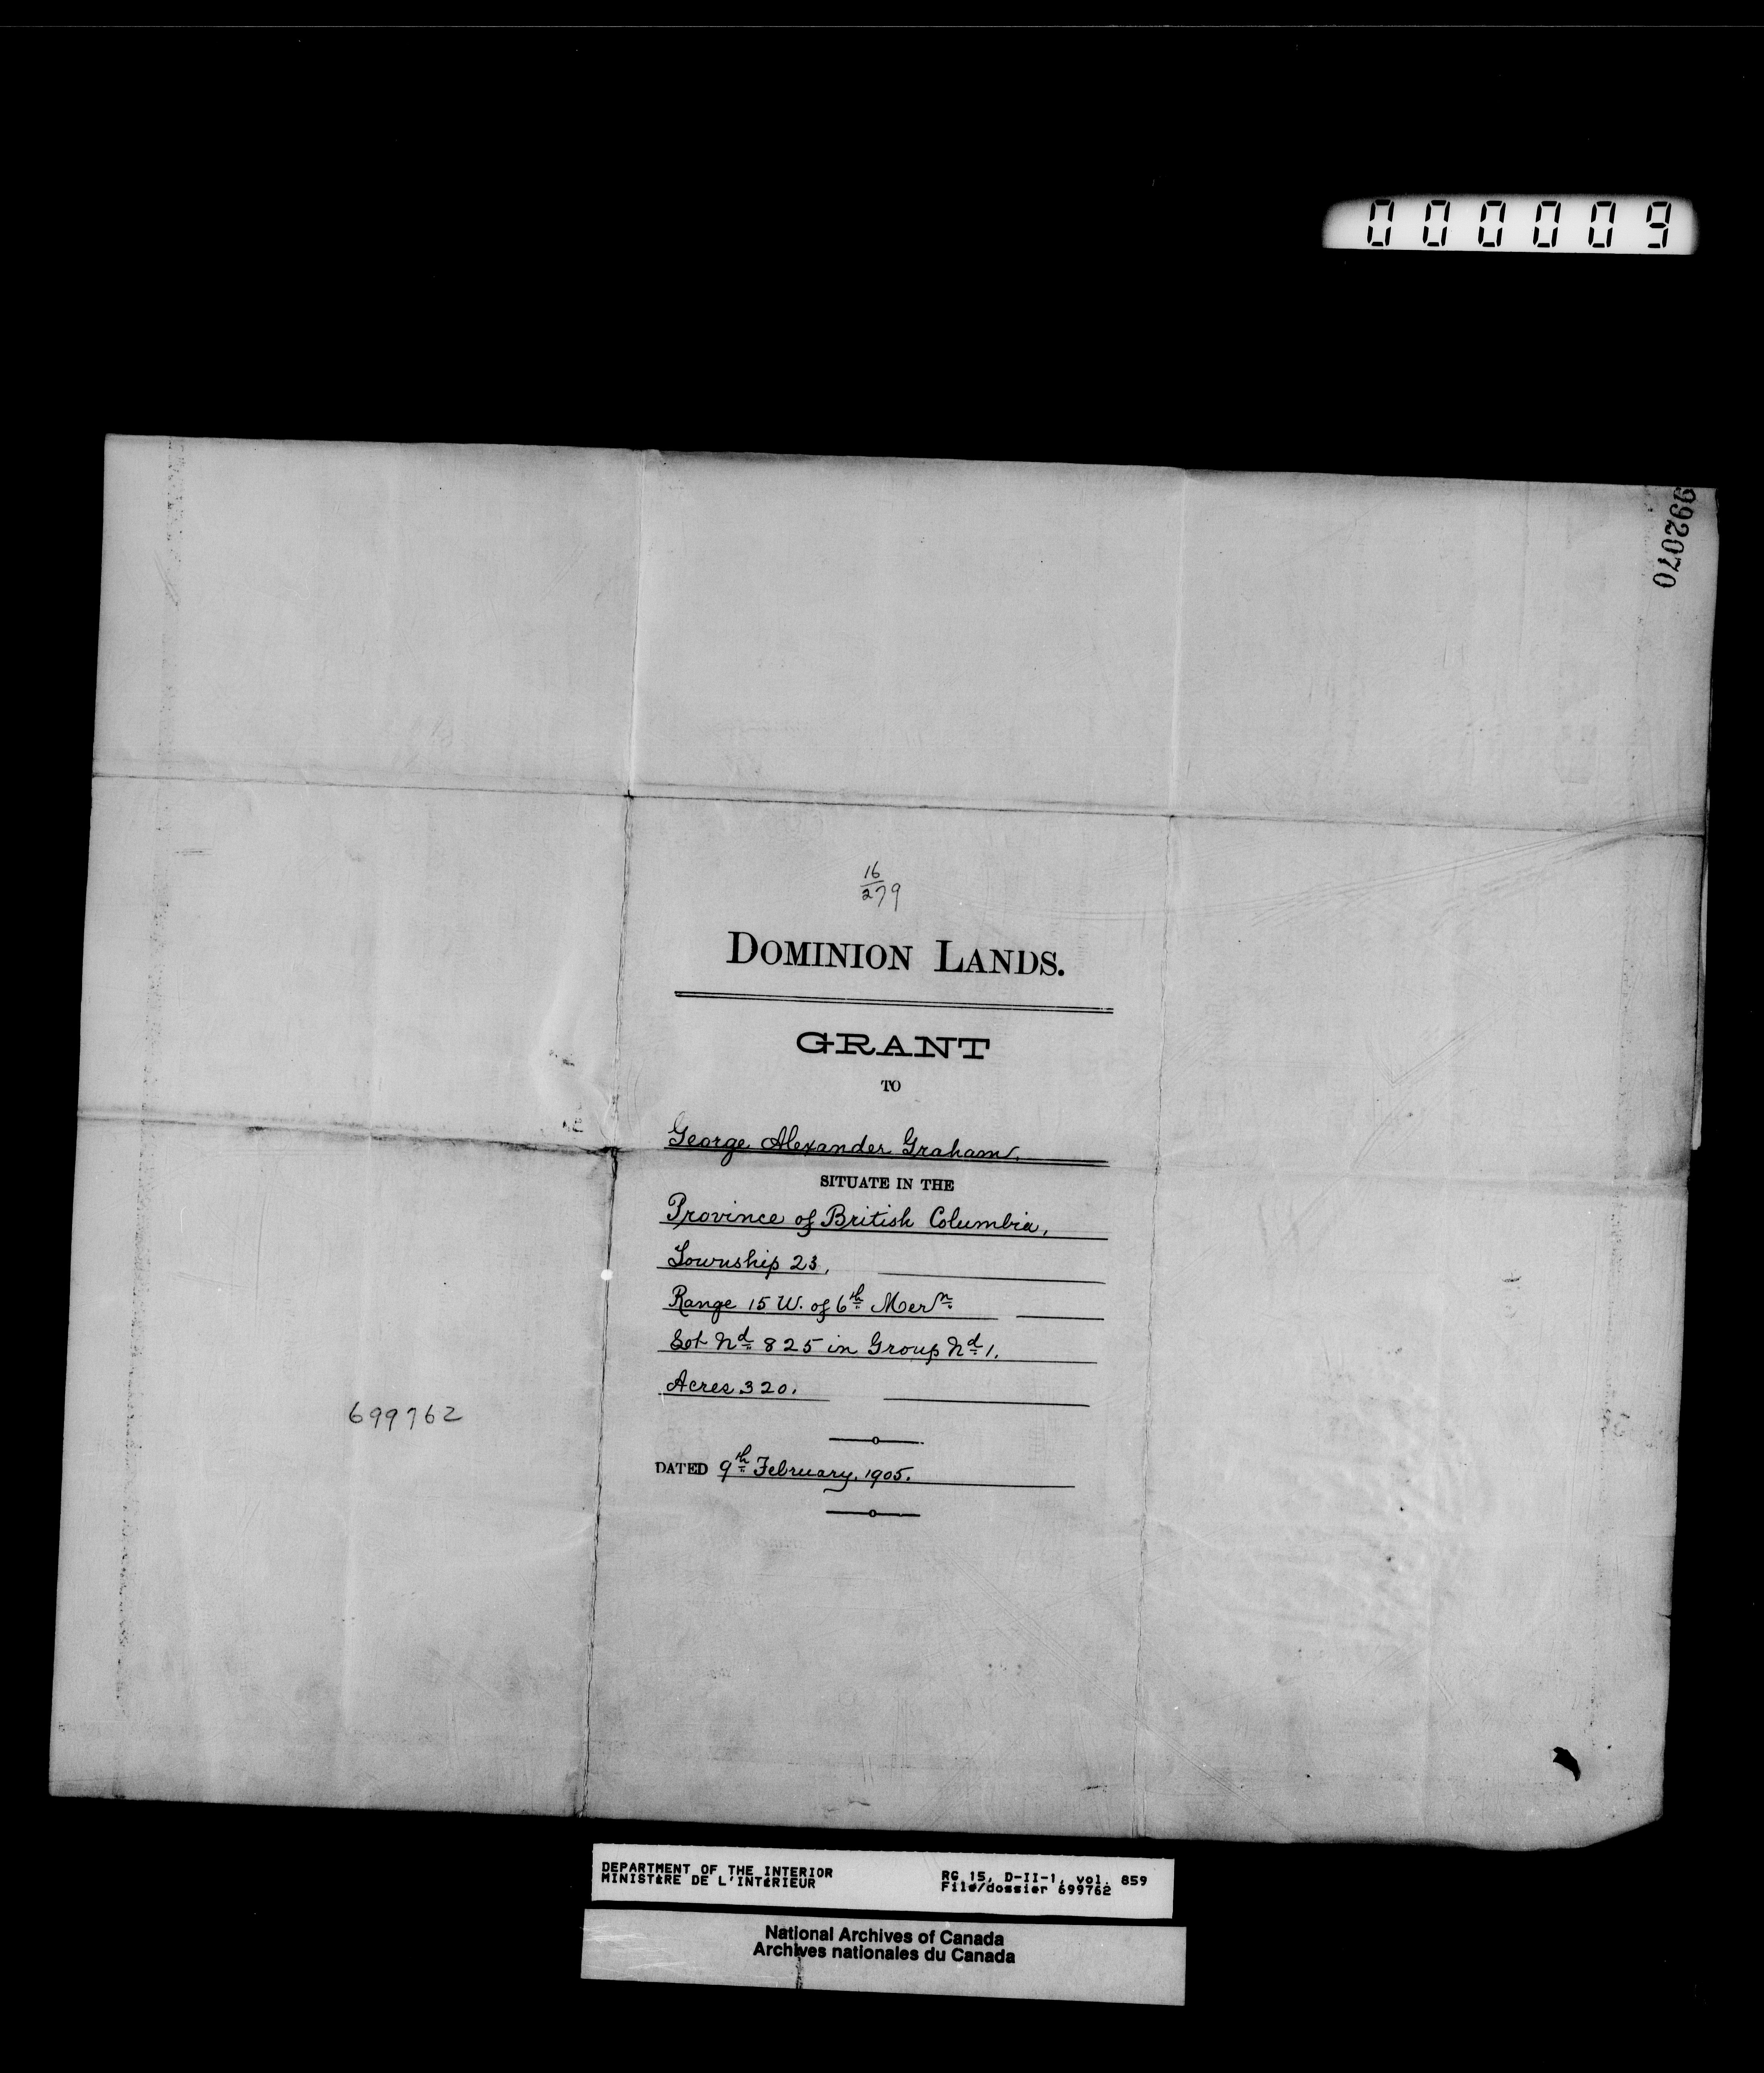 000009
992070
16
279
DOMINION LANDS.
GRANT
TO
George Alexander Graham.
SITUATE IN THE
Province of British Columbia,
Township 23,
Range 15 W. of 6th Mern
Lot No 825 in Group No 1.
Acres 320.
699762
DATED 9th February, 1905.
DEPARTMENT OF THE INTERIOR
MINISTÈRE DE L'INTÉRIEUR
RG 15, D-II-1, vol. 859
File/dossier 699762
National Archives of Canada
Archives nationales du Canada